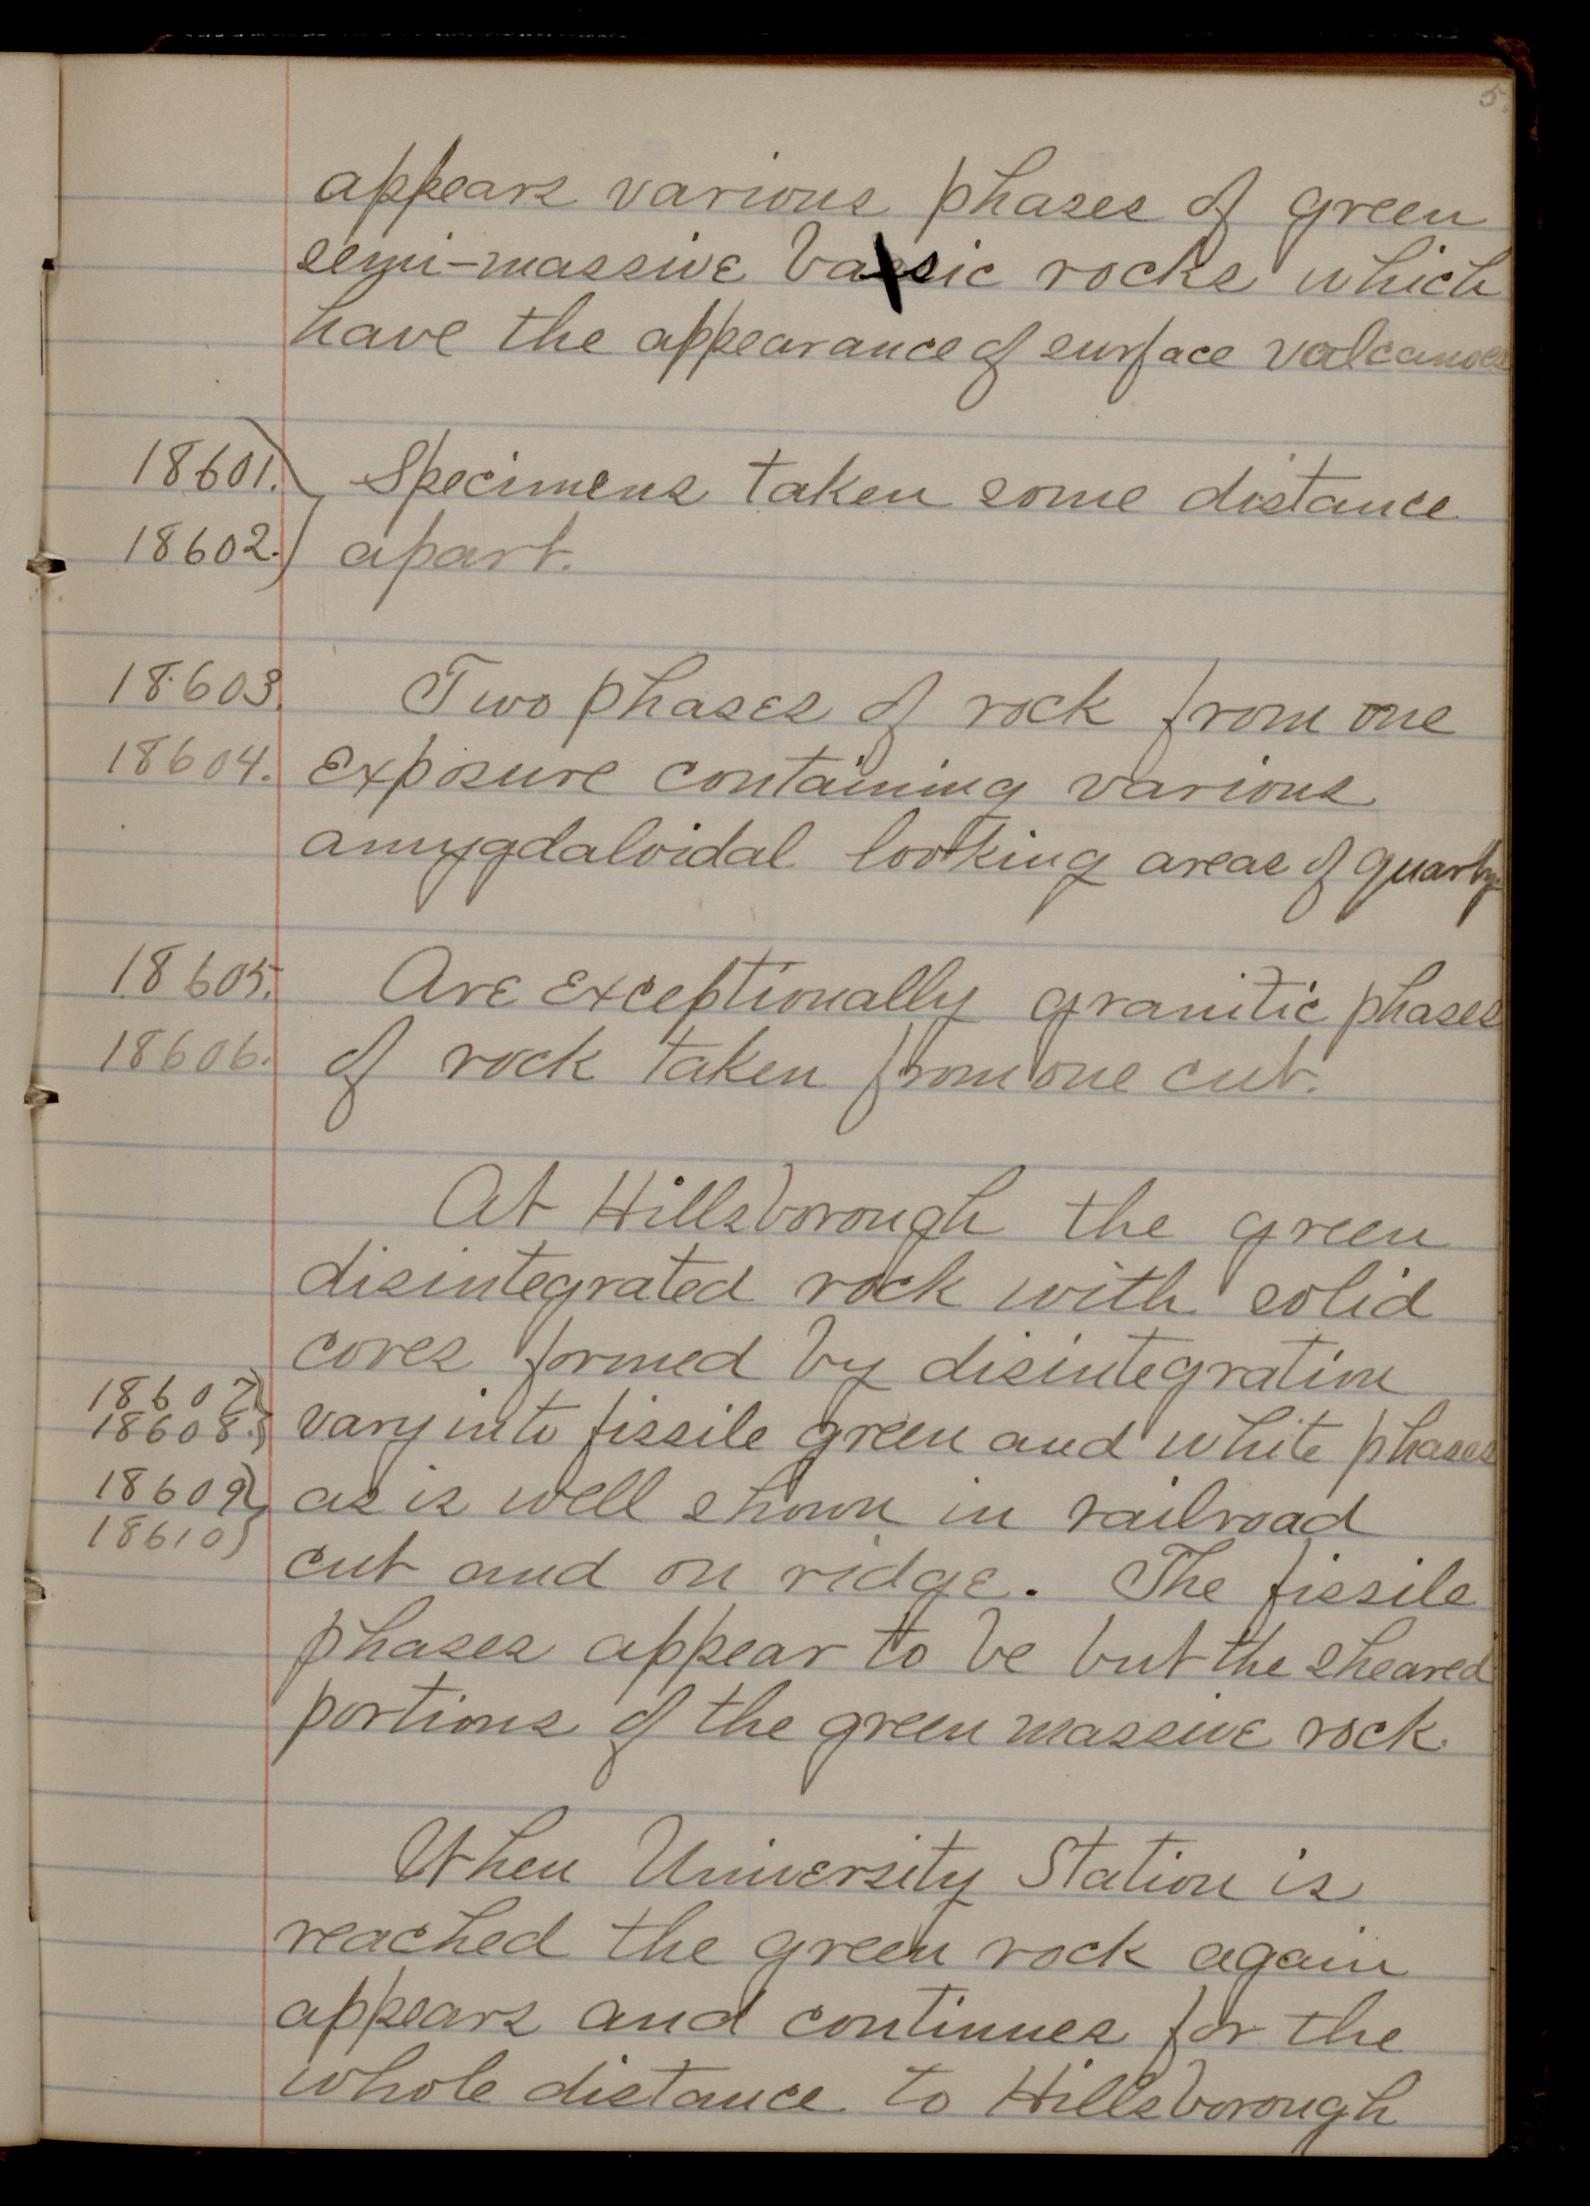 5.
appears various phases of green
semi-massive basic rocks which
have the appearance of surface volcanoes
18601. Specimens taken some distance
18602. apart.
18603. Two phases of rock from one
18604. exposure containing various
amygdaloidal looking areas of quartz.
18605. Are exceptionally granitic phases
18606. of rock taken from one cut.
At Hillsborough the green
disintegrated rock with solid
cores formed by disintegration
18607.
18608. vary into fissile green and white phases
18609 as is well shown in railroad
18610
cut and on ridge. The fissile
phases appear to be but the sheared
portions of the green massive rock.
When University Station is
reached the green rock again
appears and continues for the
whole distance to Hillsborough